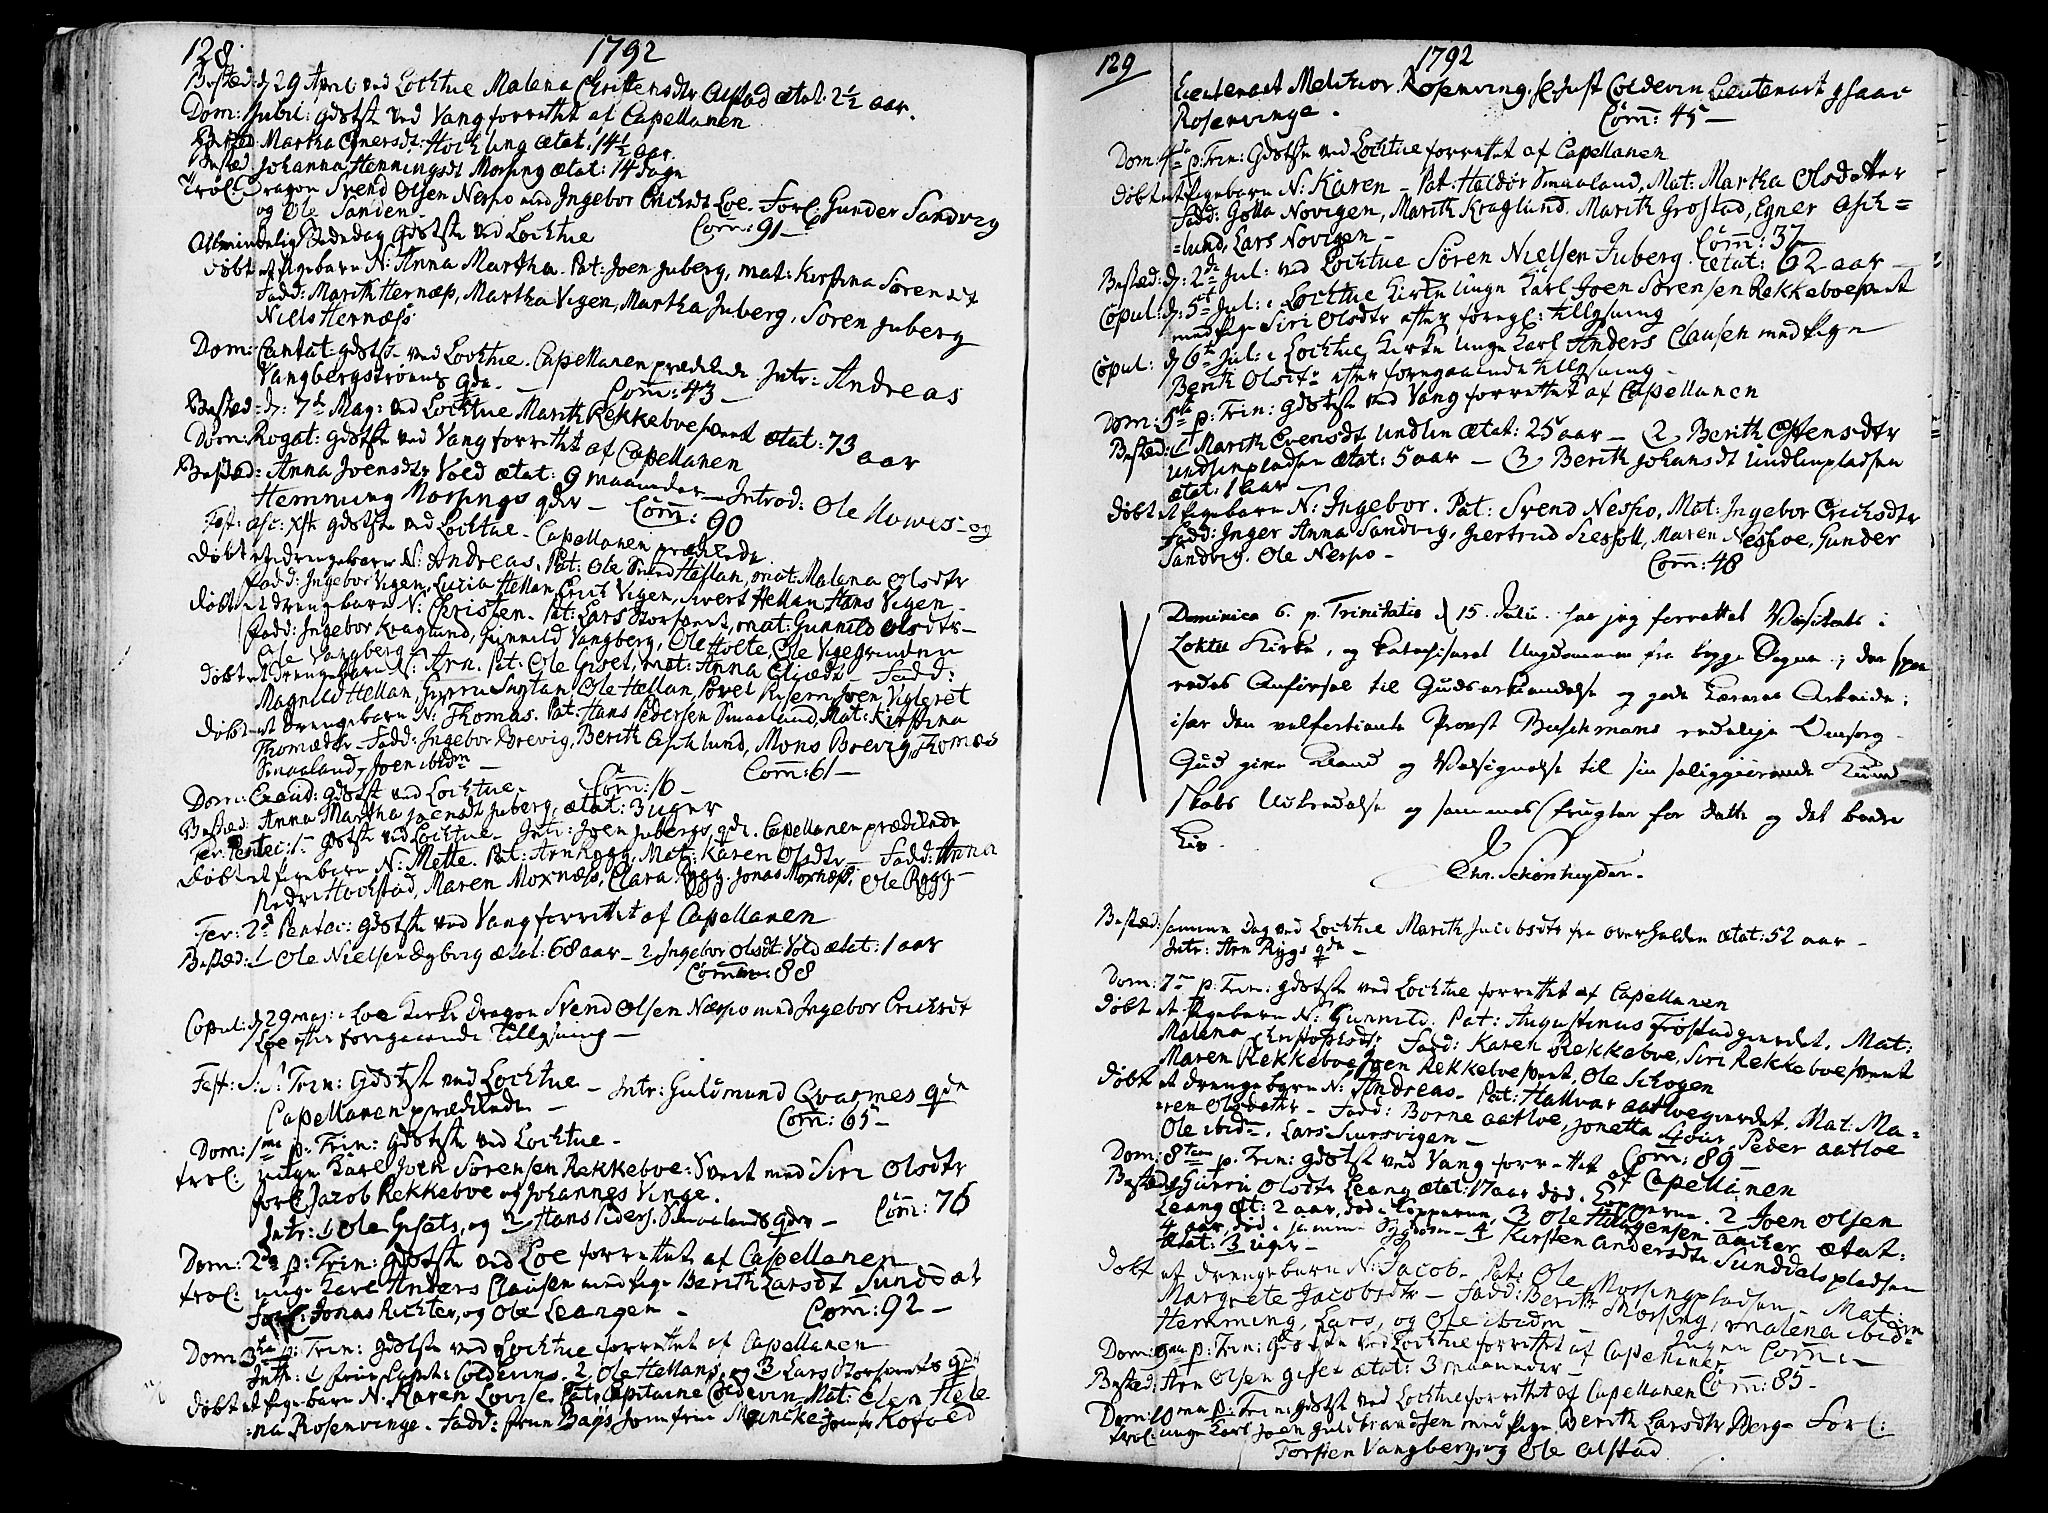 128.
1792
Bested: d 29 April ved Lochtue Malena Christensdtr Alstad ætat: 2½ aar.
Dom: Jubil: gdstste ved Vang forrettet af Capellanen
Bested Martha Egnersdt: Hochlung ætat: 14½ aar.
Bested: Johanna Henningsdt Morsing ætat: 14 dage
Trol: Dragon Svend Olsen Nespo med Ingebor Erichsdt Loe. Forl: Gunder Sandvig
og Ole Sanden. Com: 91 —
Allmindelig Bededag gdstste ved Lochtue
døbt et pigebarn N: Anna Martha. Pat: Joen Juberg, mat: Kirstina Sørensdt
Fadd: Marith Hernæs, Martha Vigen, Martha Juberg, Søren Juberg
Niels Hernæss.
Dom: Cantat: gdstste ved Lochtue. Capellanen prædikede Intr: Andreas
Vangbergstrøens qde. — Com: 43 —
Bested: d: 7de Maj: ved Lochtue Marith Rekkeboesvent ætat: 73 aar
Dom: Rogat: gdstste ved Vang forrettet af Capellanen
Bested: Anna Joensdtr Vold ætat: 9 maaneder — Introd: Ole Mowis og
Hemming Morsings qder — Com: 90
Fest: asc: xsti gdstste ved Lochtue. Capellanen prædikede.
døbt et drengebarn N: Andreas. Pat: Ole Hellan, mat: Malena Olsdtr
Fadd: Ingebor Vigen, Luzia Hellan, Erich Vigen, Sivert Hellan Hans Vigen —
døbt et drengebarn N: Christen. Pat: Lars Storsvent, mat: Gunnild Olsdtr —
Fadd: Ingebor Kraglund, Gunnild Vangberg, Ole Holte, Ole Vigesrinden
Ole Vangberg —
døbt et drengebarn N: Arn. Pat: Ole Giset, mat: Anna Fadd:
Magnild Hellan, Ole Hellan, Povel Joen Vigleret
døbt et drengebarn N: Thomas. Pat: Hans Pedersen Smaaland, Mat: Kirstina
Thomædtr — Fadd: Ingebor Brevig, Berith Aschlund, Mons Brevig, Thomas
Smaaland, Joen ibidm — Com: 61 —
Dom: Exaud: gdstste ved Lochtue. Com: 16 —
Bested: Anna Martha Joensdt Juberg, ætat: 3 uger
Fer: Pentec: 1. gdstste ved Lochtue — Intr: Joen Jubergs qde. Capellanen prædikede
døbt et pigebarn N: Mette. Pat: Arn Rygg, Mat: Karen Olsdtr — Fadd: Anna
Nedre Hochstad, Maren Moxnæss, Clara Rygg. Jonas Moxnæss. Ole Rygg —
Fer: 2d Pentec: gdstste ved Vang forrettet af Capellanen
Bested: 1 Ole Nielsen Dyborg ætat: 68 aar — 2 Ingebor Olsdt Vold ætat: 1 aar
Com: 88
Copul: d 29 maj: i Loe Kirke Dragon Svend Olsen Nespo med Ingebor Erichsdt
Loe efter foregaaende Tillysning —
Fest: S. S. Trin: gdstste ved Lochtue — Intr: Guldmund Qvarmes qde
Capellanen prædikede — Com: 65 —
Dom: 1ma p. Trin: gdstste ved Lochtue —
trol: unge Karl Joen Sørensen Rekkeboe: Svent med Siri Olsdtr
forl: Jacob Rekkeboe og Johannes Vinge.
Intr: 1 Ole Gisets, og 2 Hans Peders. Smaalands qder — Com: 76
Dom: 2da p: Trin: gdstste ved Loe forrettet af Capellanen
trol: unge Karl Anders Clausen med pige Berith Larsdt Sunddal
Forl: Jonas Richter, og Ole Leangen — Com: 92 —
Dom 3tia p: Trin: gdstste ved Lochtue forrettet af Capellanen
Intr: 1 frue Capt: Coldevins. 2 Ole Hellans, og 3 Lars Storsvents qder
døbt et pigebarn N. Karen Lovise Pat: Capitaine Coldevin, Mat: Elen Hele
=na Rosenvinge. Fadd: frue Bays Jomfrue Meincke, Jomfr Kofoed
129
1792
Lieutenant Melchior Rosenving, Just Coldevin Lieutenant Isaac
Rosenvinge. Com: 45 —
Dom: 4ta p: Trin: Gdstste ved Lochtue forrettet af Capellanen
døbt et pigebarn N: Karen — Pat: Haldor Smaaland, Mat: Martha Olsdatter
Fadd: Golla Novigen, Marith Kraglund. Marith Grostad, Egner Asch=
=lund, Lars Novigen — Com: 37
Bested: d: 2de Jul: ved Lochtue Søren Nielsen Juberg. ætat: 62 aar —
Copul: d: 5te Jul: i Lochtue Kirke unge Karl Joen Sørensen Rekkeboesvent
med pige Siri Olsdtr efter foregl: tillysning
Copul: d 6te Jul: i Lochtue Kirke unge Karl Anders Clausen med pige
Berith Olsdtr efter foregaaende tillysning —
Dom: 5ta p: Trin: gdstste ved Vang forrettet af Capellanen
Bested: 1 Marith Evensdt Undlin ætat: 25 aar — 2 Berith Estensdtr
Undlinpladsen ætat: 5 aar — 3 Berith Johansdt Undlinpladsen
ætat: 1 aar —
døbt et pigebarn N: Ingebor. Pat: Svend Nespo, Mat: Ingebor Erichsdtr
Fadd: Inger Anna Sandvig, Giertrud Maren Nespoe, Gunder
Sandvig. Ole Nespo — Com: 48
Dominica 6. p. Trinitatis d 15. Julii har jeg forrettet Visitats i
Loktu Kirke, og Katechiseret Ungdommen fra begge Sogne; der spo=
redes Anførsel til Guds erkiendelse og gode Læreres Arbeide;
især den velfortiente Provst Buschmans redelige Omsorg.
Gud give Naade og Velsignelse til sin saliggiørende Kund=
skabs Udbredelse og sammes frugter for dette og det bedre
Liv.
Chr. Schønheyder.
Bested: samme Dag ved Lochtue Marith Jacobsdtr fra overhalden ætat: 52 aar —
Intr: Arn Ryggs qde —
Dom: 7ma p: Trin: gdstste ved Lochtue forrettet af Capellanen
døbt et Pigebarn N: Gunnild. Pat: Augustinus Frostadgierdet. Mat:
Malena Christophsdtr Fadd: Karen Rekkeboe, Siri Rekkeboesvent
Maren Rekkeboe Joen Rekkeboesvent, Ole Schogen
døbt et drengebarn N: Andreas. Pat: Hallvar aatloegierdet. Mat: Ma=
=ren Olsdatr — Fadd: Borne aatloe, Jonetta Peder aatloe
Ole ibidm. Lars Siursvigen — Com: 89 —
Dom: 8tava p. Trin: gdstste ved Vang forrettet af Capellanen
Bested: 1 Guru Olsdtr Leang ætat: 17 aar død i Kopperne. 2 Joen Olsen
Leang æt: 2 aar, død i Kopperne, 3 Ole Hellgensen aacker ætat:
4 aar, død i samme Sygdom — 4 Kirsten Andersdtr Sunddalspladsen
ætat: 3 uger —
døbt et drengebarn N: Jacob. Pat: Ole Morsingpladsen — Mat:
Margrete Jacobsdtr — Fadd: Berith Morsing, Malena ibid=
Hemming, Lars, og Ole ibidm — Ingen Com: —
Dom: 9na p: Trin: Gdstste ved Lochtue forrettet af Capellanen
Bested: Arn Olsen giset ætat: 3 maaneder — Com: 85 —
Dom: 10ma p: Trin: gdstste ved Lochtue forrettet af Capellanen
trol: unge Karl Joen Guldbrandsen med pige Berith Larsdtr Berg — Forl:
Torsten Vangberg, og Ole Alstad